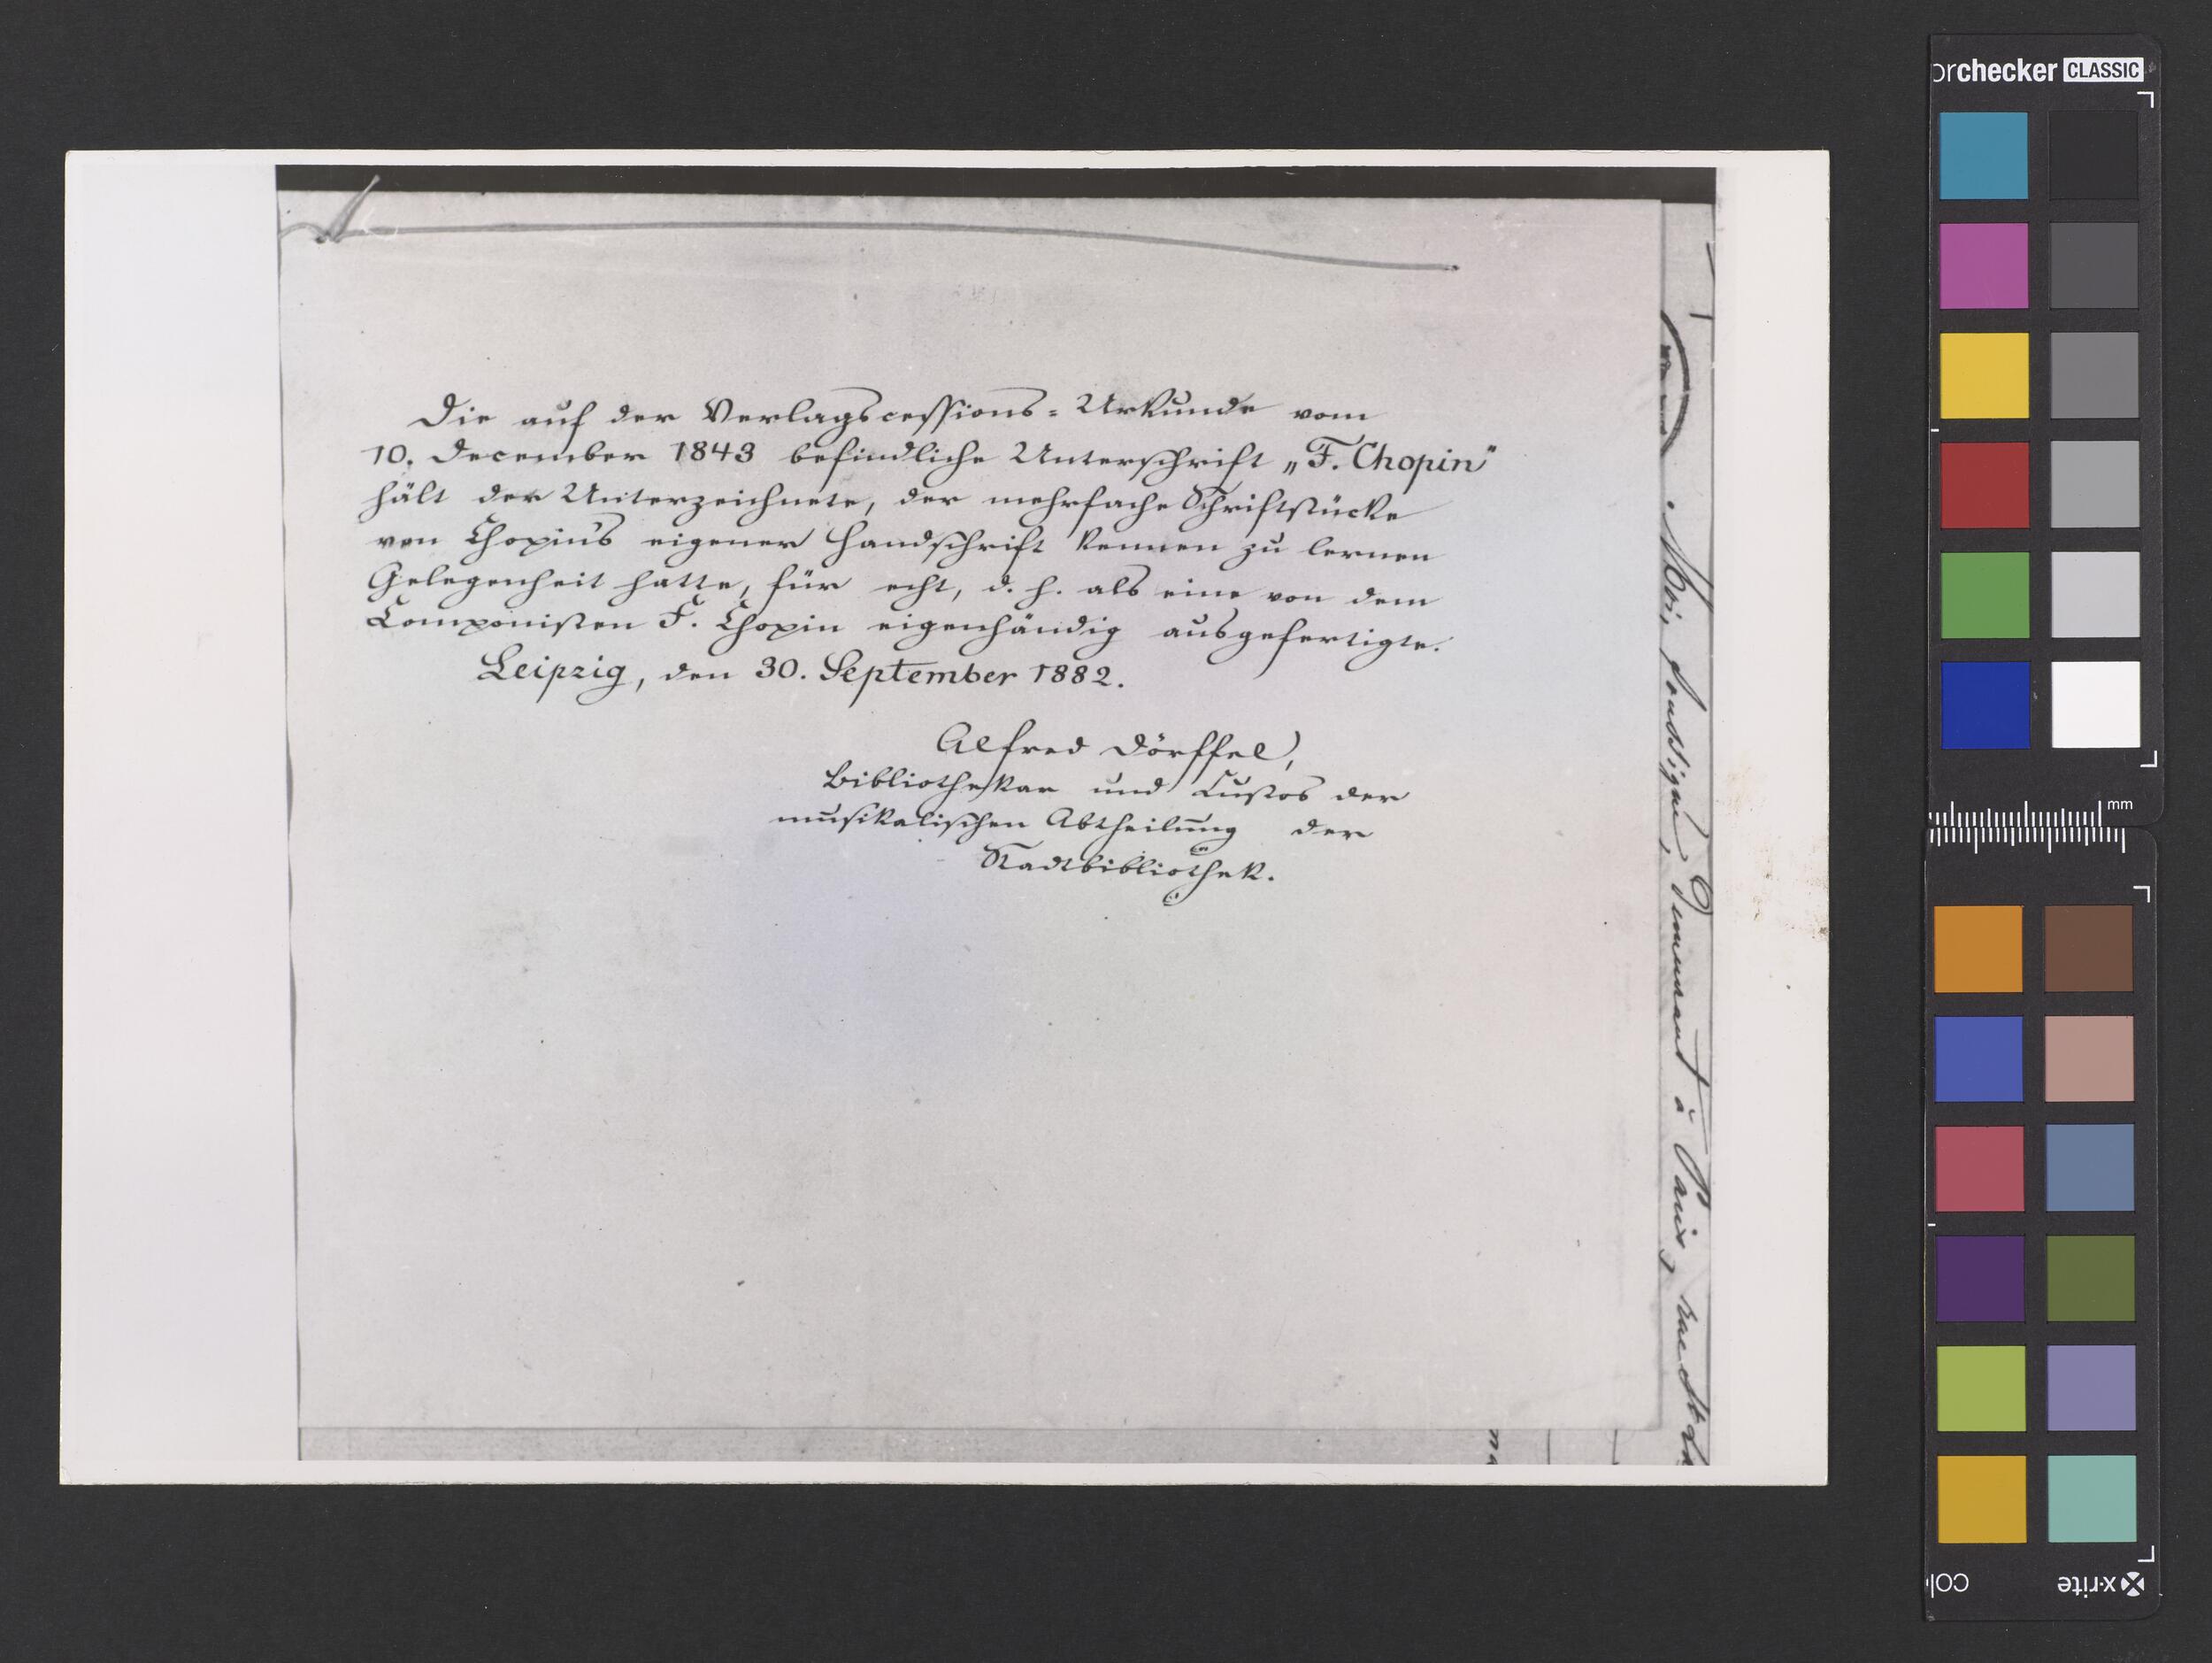 Die auf der Verlagscessions-Urkunde vom
10. December 1843 befindliche Unterschrift „F. Chopin"
hält der Unterzeichnete, der mehrfache Schriftstücke
von Chopin's eigener Handschrift kennen zu lernen
Gelegenheit hatte, für echt, d. h. als eine von dem
Componisten F. Chopin eigenhändig ausgefertigte.
Leipzig, den 30. September 1882.
Alfred Dörffel,
Bibliothekar und Custos der
musikalischen Abtheilung der
Stadtbibliothek.
Moi, soussigné, demeurant à Paris, rue St
orchecker CLASSIC
mm
x-rite
col